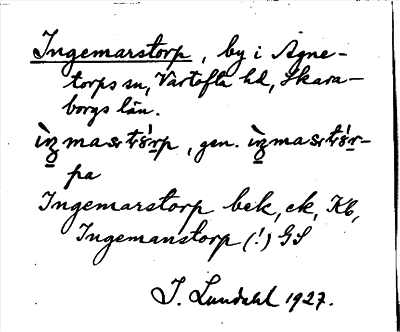 Ingemarstorp, by i Agne-
torps sn, Vartofta hd, Skara-
borgs län.
gen.
pa
Ingemarstorp bek, ek, Kb,
Ingemanstorp (!) GS
I. Lundahl 1927.